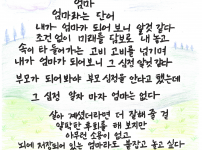 엄마
엄마라는 단어
내가 엄마가 되어 보니 알것 같다
조건 없이 미래를 담보로 내 놓고
속이 타 들어가는 고비 고비를 넘기며
내가 엄마가 되어보니 그 심정 알것 같다
부모가 되어 봐야 부모 심정을 안다고 했는데
그 심정 알자 마자 엄마는 없다
살아 계셨더라면 더 잘해 줄 걸
얄팍한 후회를 해 보지만
아무런 소용이 없고
뇌에 저장되어 있는 엄마라도 붙잡고 놓고 싶다